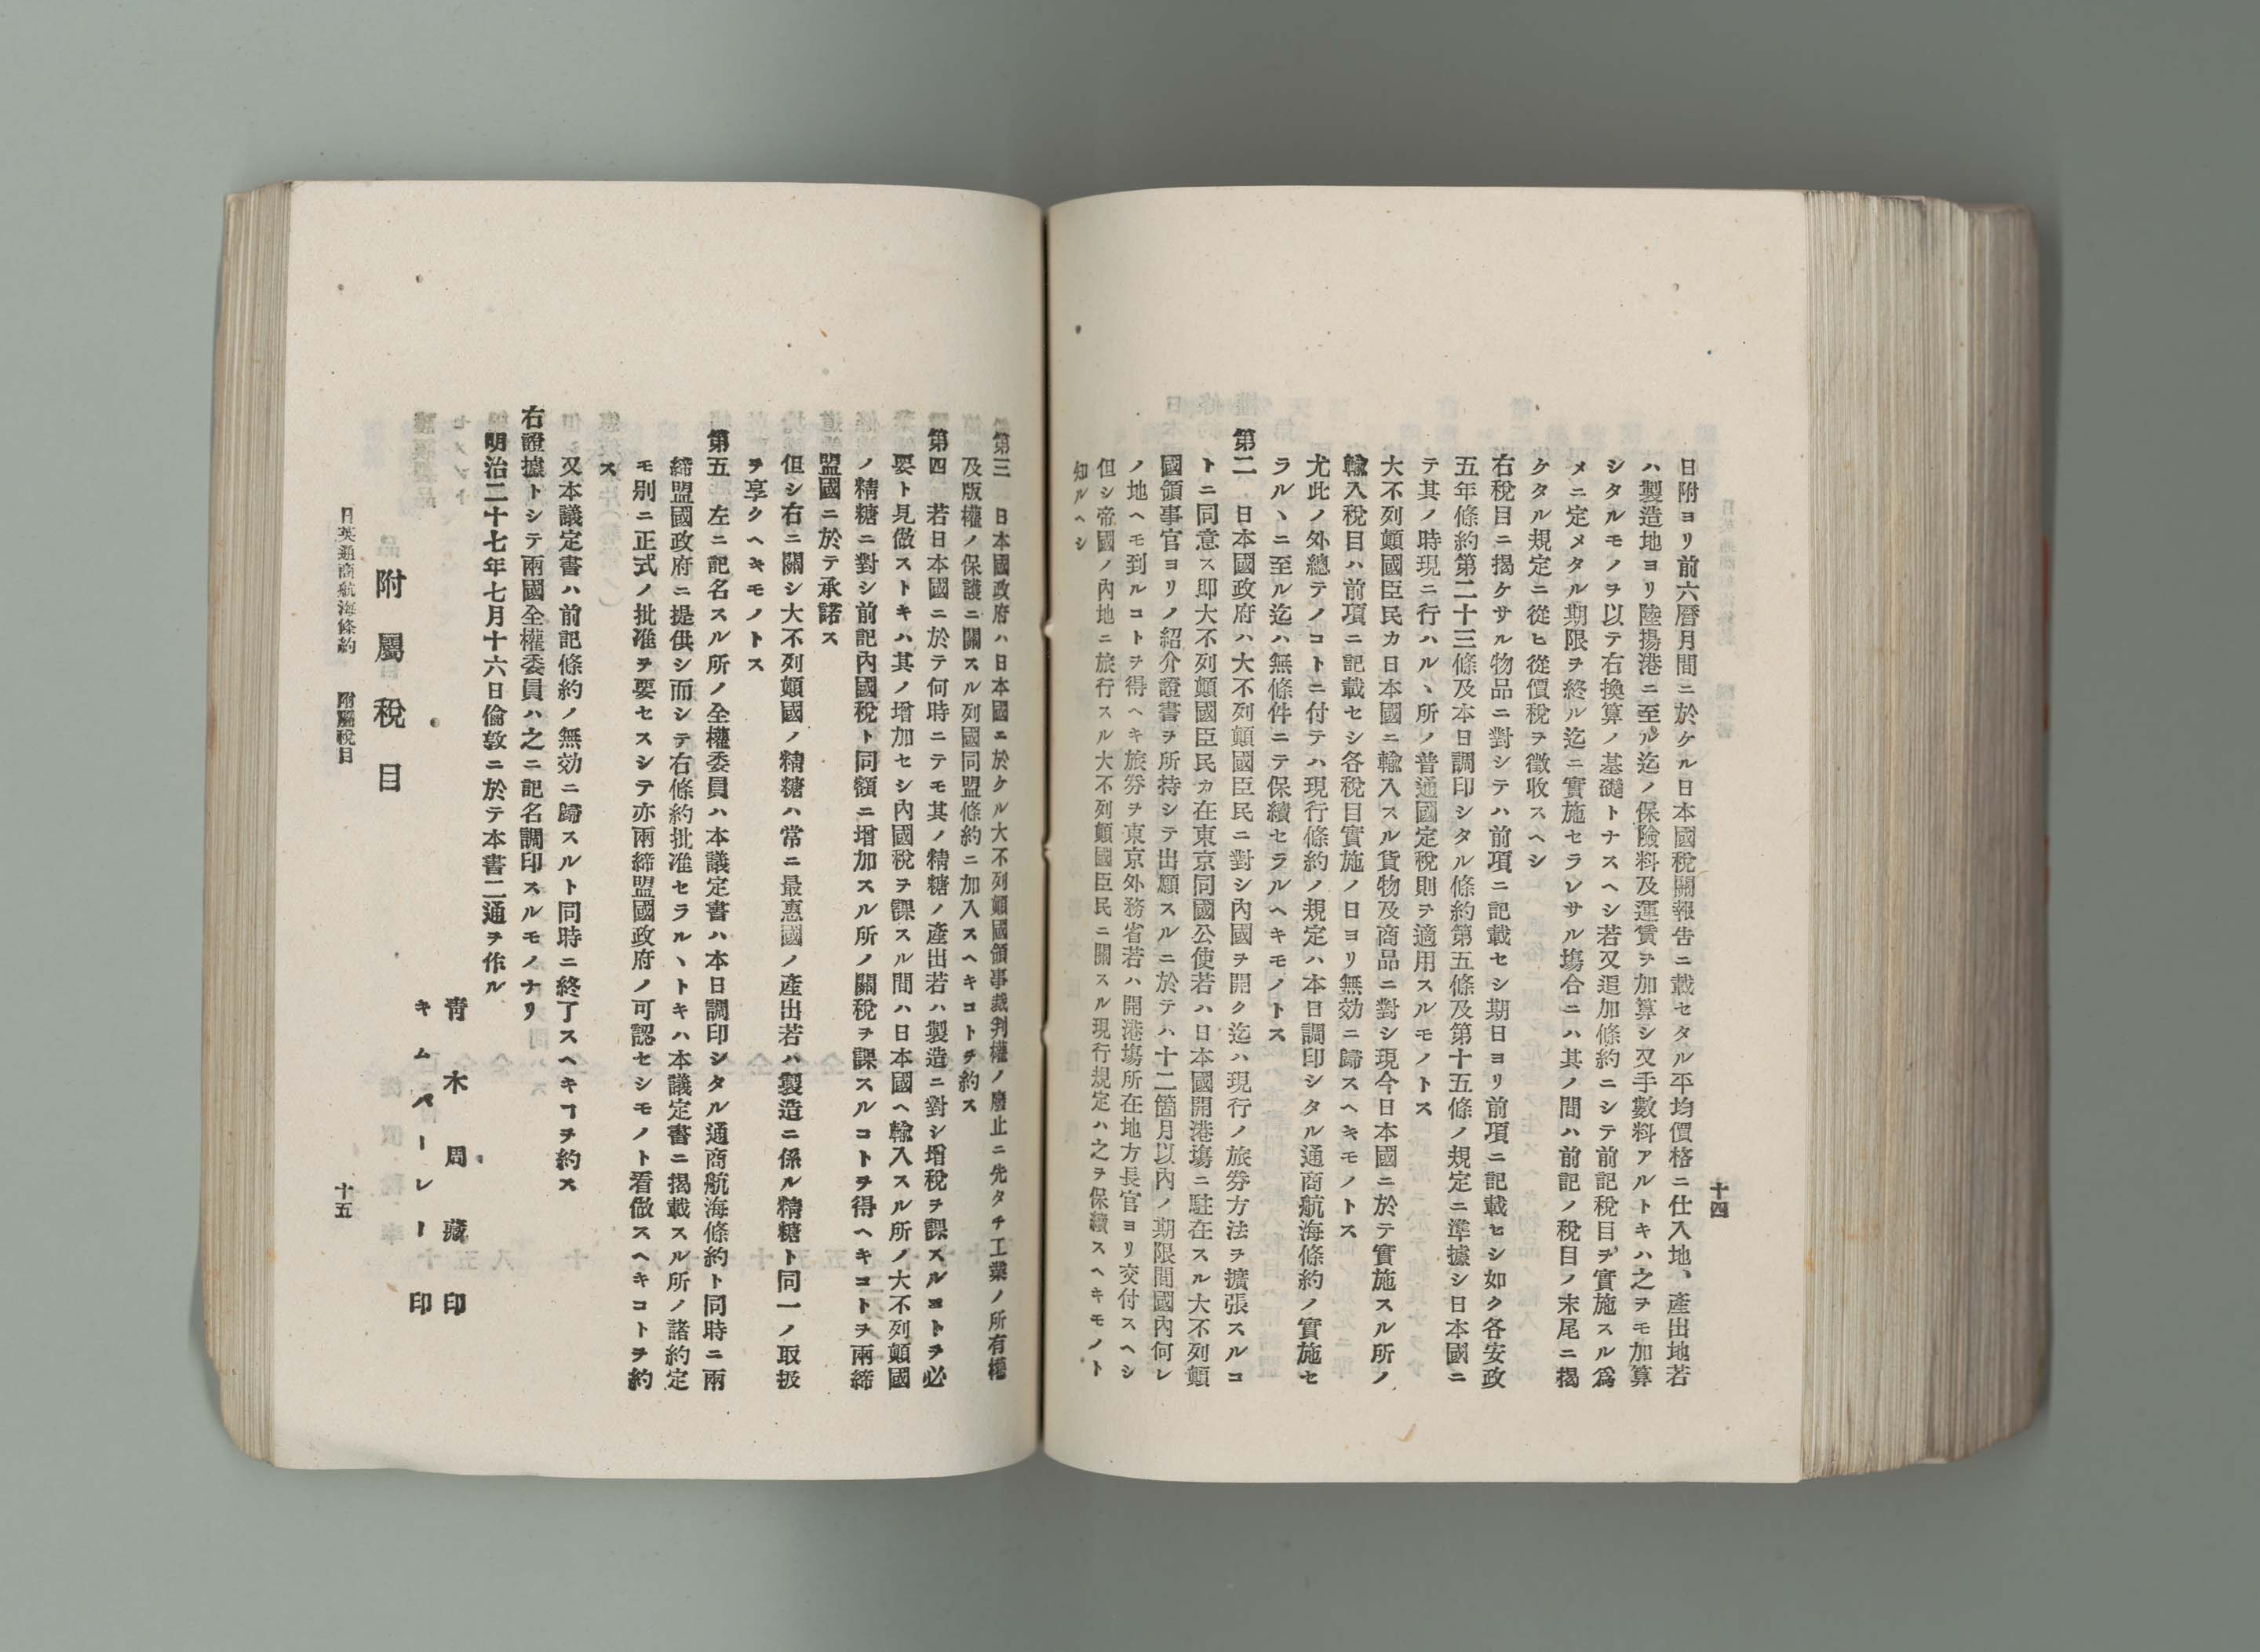 十四
日附ヨリ前六曆月間ニ於ケル日本國稅關報吿ニ載セタル平均價格ニ仕入地、產出地若
ハ製造地ヨリ陸揚港ニ至ル迄ノ保險料及運賃ヲ加算シ又手數料アルトキハ之ヲモ加算
シタルモノヲ以テ右換算ノ基礎トナスヘシ若又追加條約ニシテ前記稅目ヲ實施スル爲
メニ定メタル期限ヲ終ル迄ニ實施セラレサル塲合ニハ其ノ間ハ前記ノ稅目ノ末尾ニ揭
ケタル規定ニ從ヒ從價稅ヲ徵收スヘシ
右稅目ニ揭ケサル物品ニ對シテハ前項ニ記載セシ期日ヨリ前項ニ記載セシ如ク各安政
五年條約第二十三條及本日調印シタル條約第五條及第十五條ノ規定ニ準據シ日本國ニ
テ其ノ時現ニ行ハルヽ所ノ普通國定稅則ヲ適用スルモノトス
大不列顚國臣民カ日本國ニ輸入スル貨物及商品ニ對シ現今日本國ニ於テ實施スル所ノ
輸入稅目ハ前項ニ記載セシ各稅目實施ノ日ヨリ無効ニ歸スヘキモノトス
尤此ノ外總テノコトニ付テハ現行條約ノ規定ハ本日調印シタル通商航海條約ノ實施セ
ラルヽニ至ル迄ハ無條件ニテ保續セラルヘキモノトス
第二 日本國政府ハ大不列顚國臣民ニ對シ內國ヲ開ク迄ハ現行ノ旅劵方法ヲ擴張スルコ
トニ同意ス卽大不列顚國臣民カ在東京同國公使若ハ日本國開港塲ニ駐在スル大不列顚
國領事官ヨリノ紹介證書ヲ所持シテ出願スルニ於テハ十二箇月以內ノ期限間國內何レ
ノ地ヘモ到ルコトヲ得ヘキ旅劵ヲ東京外務省若ハ開港塲所在地方長官ヨリ交付スヘシ
但シ帝國ノ內地ニ旅行スル大不列顚國臣民ニ關スル現行規定ハ之ヲ保續スヘキモノト
知ルヘシ
第三 日本國政府ハ日本國ニ於ケル大不列顚國領事裁判權ノ廢止ニ先タチ工業ノ所有權
及版權ノ保護ニ關スル列國同盟條約ニ加入スヘキコトヲ約ス
第四 若日本國ニ於テ何時ニテモ其ノ精糖ノ產出若ハ製造ニ對シ增稅ヲ課スルコトヲ必
要ト見做ストキハ其ノ增加セシ內國稅ヲ課スル間ハ日本國ヘ輸入スル所ノ大不列顚國
ノ精糖ニ對シ前記內國稅ト同額ニ增加スル所ノ關稅ヲ課スルコトヲ得ヘキコトヲ兩締
盟國ニ於テ承諾ス
但シ右ニ關シ大不列顚國ノ精糖ハ常ニ最惠國ノ產出若ハ製造ニ係ル精糖ト同一ノ取扱
ヲ享クヘキモノトス
第五 左ニ記名スル所ノ全權委員ハ本議定書ハ本日調印シタル通商航海條約ト同時ニ兩
締盟國政府ニ提供シ而シテ右條約批准セラルヽトキハ本議定書ニ揭載スル所ノ諸約定
モ別ニ正式ノ批准ヲ要セスシテ亦兩締盟國政府ノ可認セシモノト看做スヘキコトヲ約
ス
又本議定書ハ前記條約ノ無効ニ歸スルト同時ニ終了スヘキヿヲ約ス
右證據トシテ兩國全權委員ハ之ニ記名調印スルモノナリ
明治二十七年七月十六日倫敦ニ於テ本書二通ヲ作ル
靑木周藏 印
キムバーレー 印
附屬稅目
日英通商航海條約 附屬稅目 十五